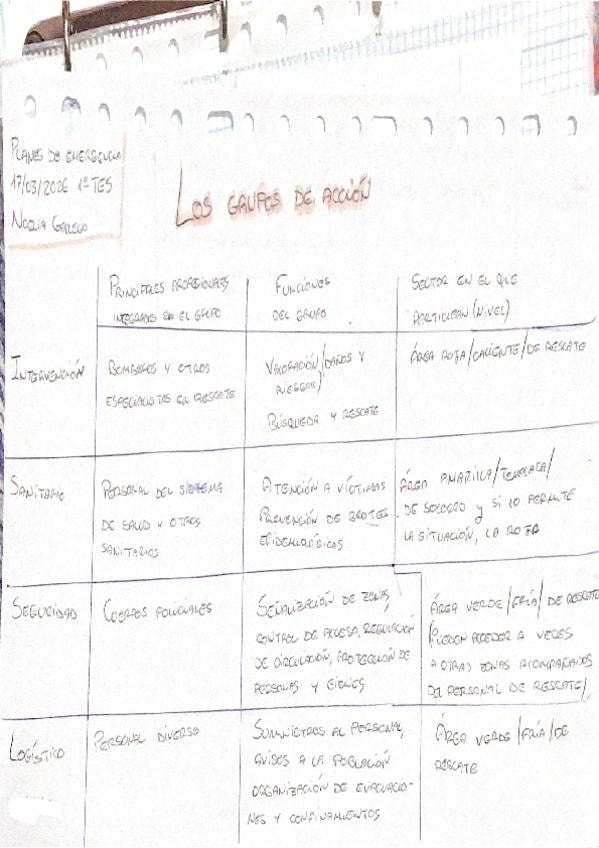 PLANES DE EMERGENCIA
17/03/2026 1º TES
NOELIA GALLEGO
LOS GRUPOS DE ACCIÓN
PRINCIPALES PROFESIONALES
INTEGRADOS EN EL GRUPO
FUNCIONES
DEL GRUPO
SECTOR EN EL QUE
PARTICIPAN (NIVEL)
INTERVENCIÓN
BOMBEROS Y OTROS
ESPECIALISTAS EN RESCATE
VALORACIÓN/DAÑOS Y
RIESGOS/
BÚSQUEDA Y RESCATE
ÁREA ROJA/CALIENTE/DE RESCATE
SANITARIO
PERSONAL DEL SISTEMA
DE SALUD Y OTROS
SANITARIOS
ATENCIÓN A VÍCTIMAS
PREVENCIÓN DE BROTES
EPIDEMIOLÓGICOS
ÁREA AMARILLA/TEMPLADA/
DE SOCORRO Y SI LO PERMITE
LA SITUACIÓN, LA ROJA
SEGURIDAD
CUERPOS POLICIALES
SEÑALIZACIÓN DE ZONAS,
CONTROL DE ACCESO, REGULACIÓN
DE CIRCULACIÓN, PROTECCIÓN DE
PERSONAS Y BIENES
ÁREA VERDE/FRÍA/DE RESCATE
(PUEDEN ACCEDER A VECES
A OTRAS ZONAS ACOMPAÑADOS
DEL PERSONAL DE RESCATE)
LOGÍSTICO
PERSONAL DIVERSO
SUMINISTROS AL PERSONAL,
AVISOS A LA POBLACIÓN
ORGANIZACIÓN DE EVACUACIO-
NES Y CONFINAMIENTOS
ÁREA VERDE/FRÍA/DE
RESCATE